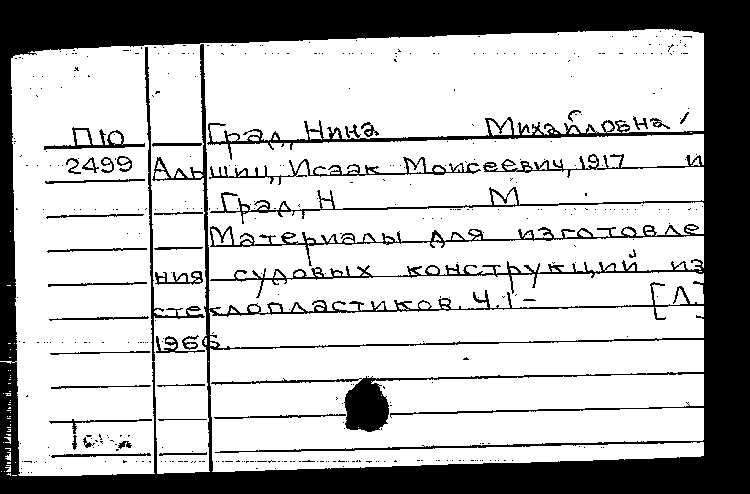 ПЮ Град, Нина Михайловна
2499 Альшиц, Исаак Моисеевич, 1917 и
Град, Н М
Материалы для изготовле
ния судовых конструкций из
стеклопластиков. Ч. 1 - [Л]
1966.